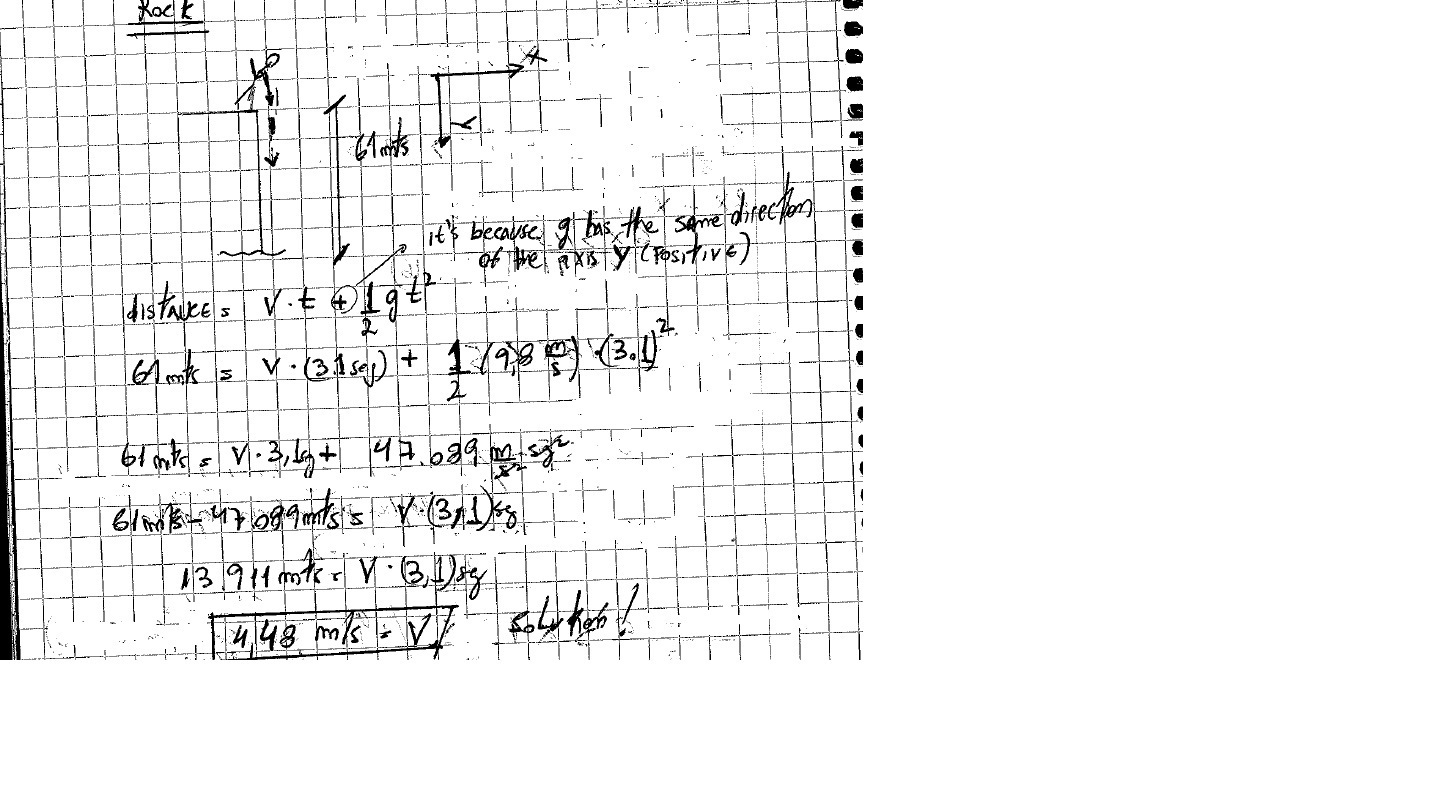 Rock
X
Y
61 mts
it's because g has the same direction
of the axis Y (POSITIVE)
DISTANCE = V · t + 1/2 g t²
61 mts = V · (3,1 seg) + 1/2 (9,8 m/s) · (3.1)²
61 mts = V · 3,1sg + 47.089 m/s² · sg²
61 mts - 47.089 mts = V · (3,1) sg
13.911 mts = V · (3,1) sg
4,48 m/s = V // solution!